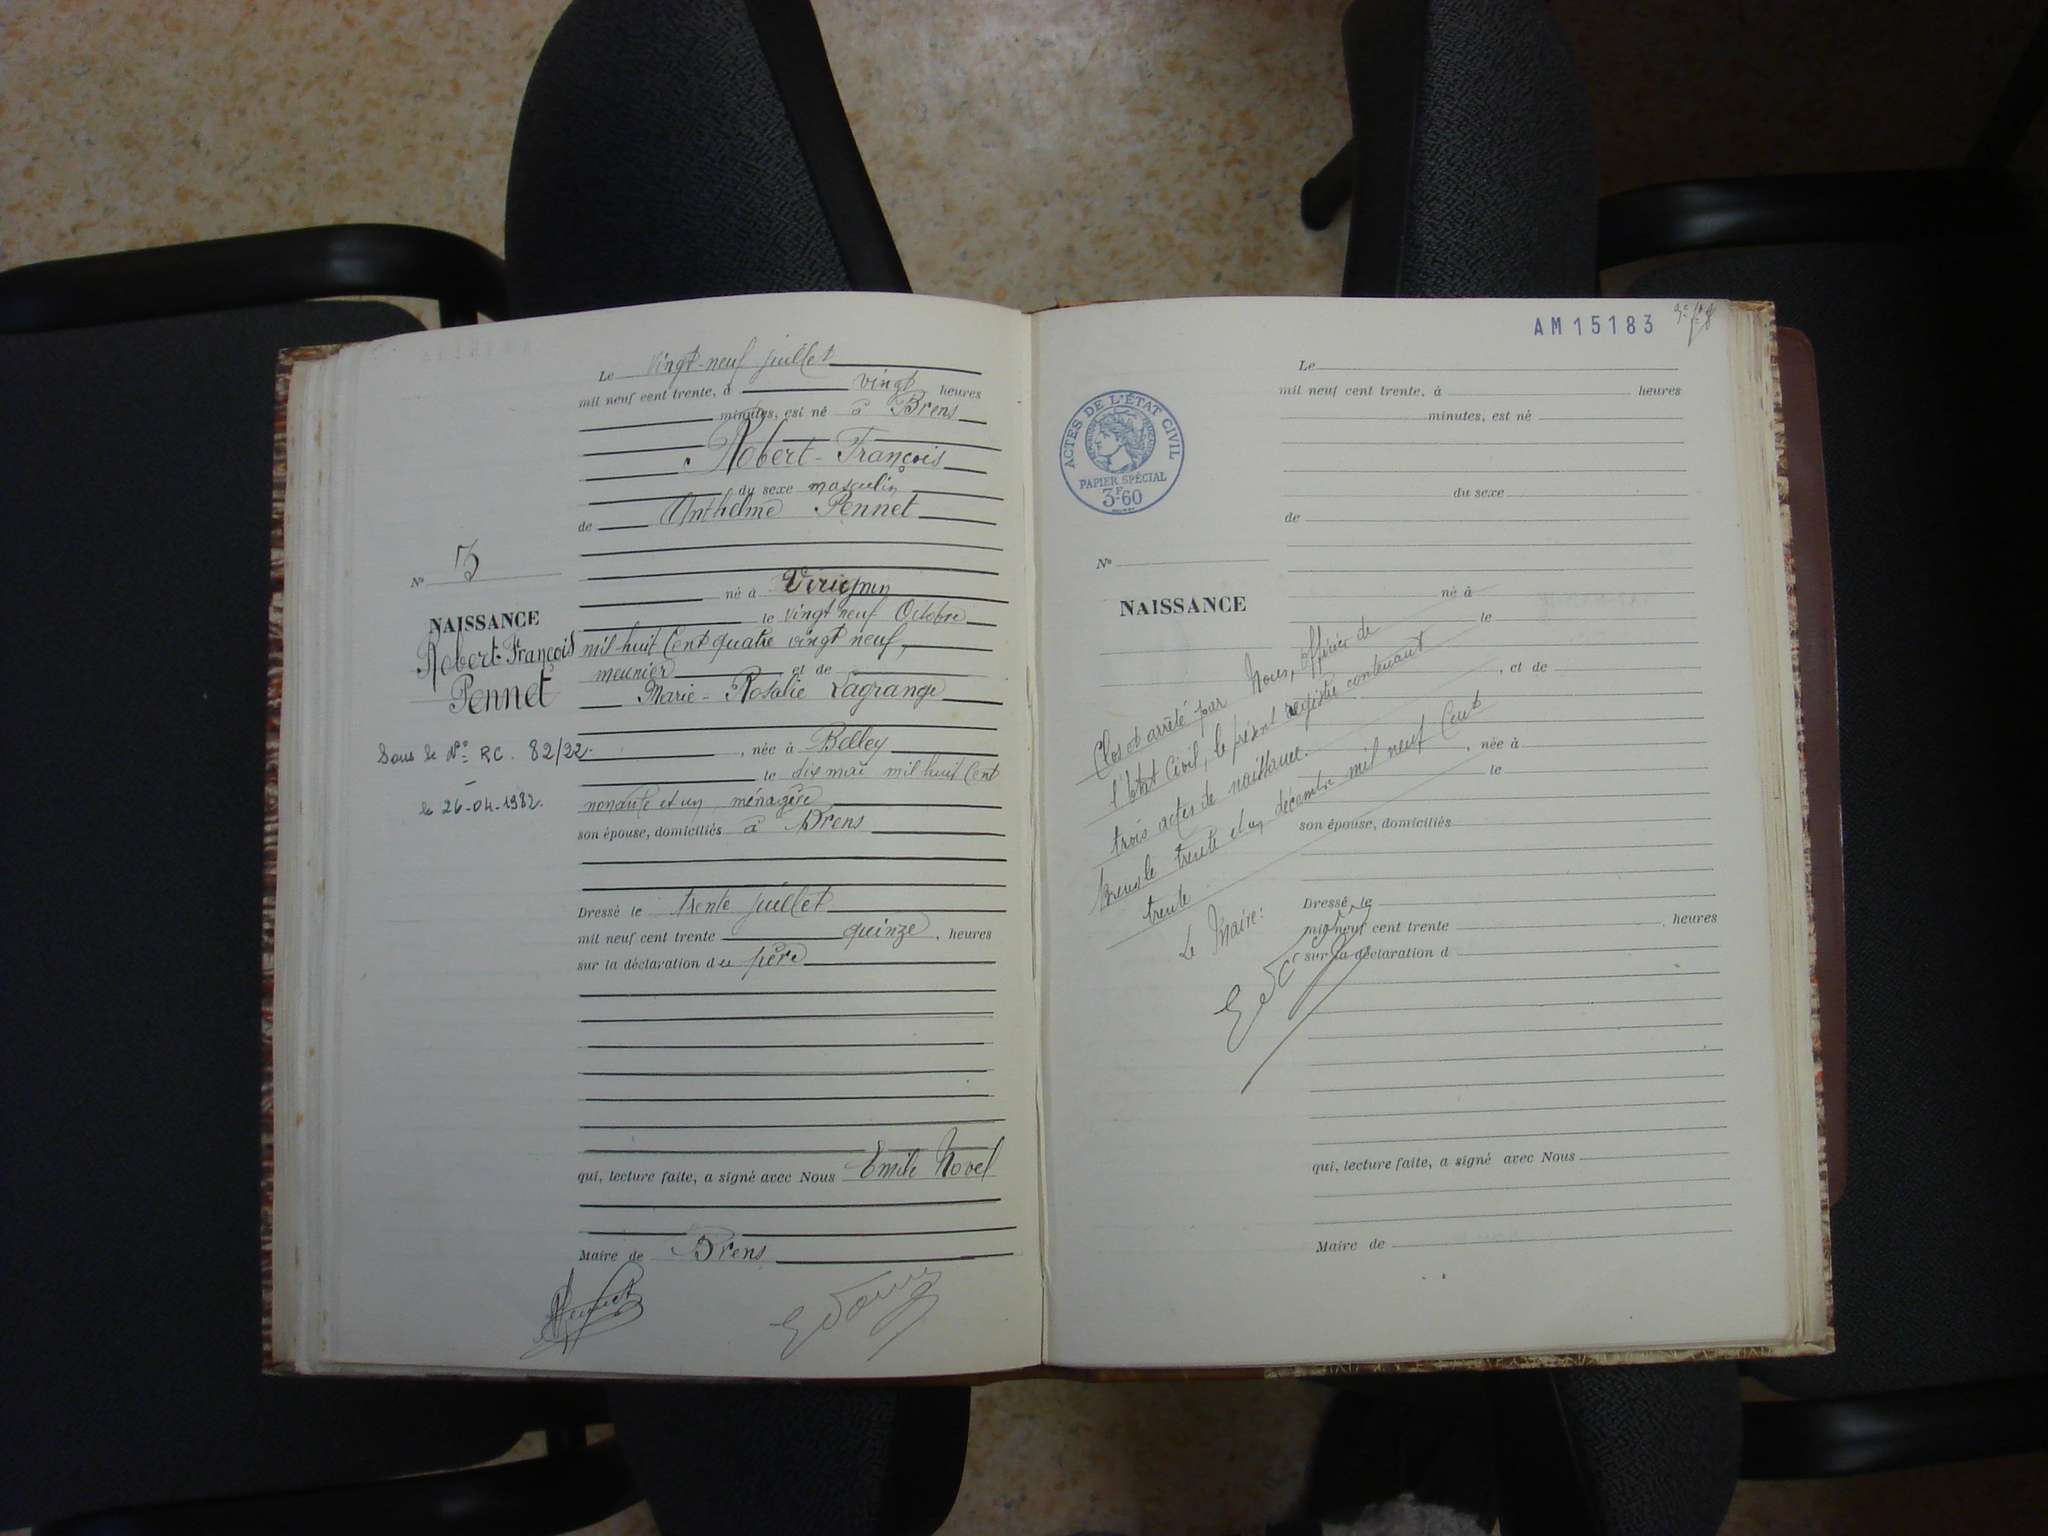 Le vingt-neuf juillet
mil neuf cent trente, à vingt heures
minutes, est né à Brens
Robert-François
du sexe masculin
de Anthelme Pennet
né à Virignin
le vingt neuf Octobre
mil huit Cent quatre vingt neuf,
meunier et de
Marie-Rosalie Lagrange
, née à Belley
le dix mai mil huit Cent
nonante et un, ménagère
son épouse, domiciliés à Brens
Dressé le trente juillet
mil neuf cent trente quinze, heures
sur la déclaration du père
qui, lecture faite, a signé avec Nous Emile Novel
Maire de Brens
N° 3
NAISSANCE
Robert-François
Pennet
Sous le N° RC. 82/22.
le 26-04-1982.
AM15183
ACTES DE L'ÉTAT CIVIL
PAPIER SPÉCIAL
3F60
Le
mil neuf cent trente, à heures
minutes, est né
du sexe
de
N°
NAISSANCE
né à
le
, et de
, née à
le
son épouse, domiciliés
Dressé le
mil neuf cent trente , heures
sur la déclaration d
qui, lecture faite, a signé avec Nous
Maire de
Clos et arrêté par Nous, officier de
l'état Civil, le présent registre contenant
trois actes de naissance.
Brens le trente et un décembre mil neuf Cent
trente
Le Maire: